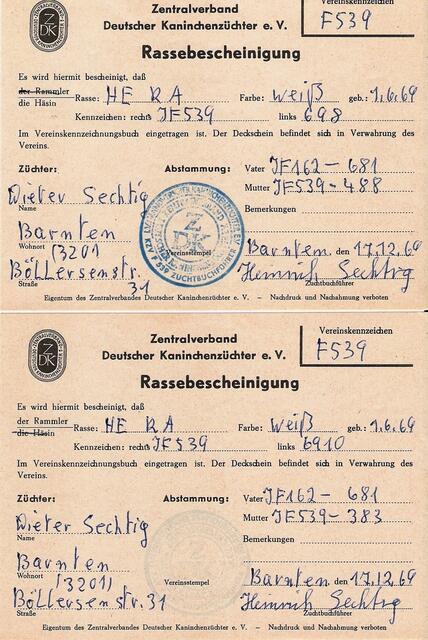 Zentralverband
Deutscher Kaninchenzüchter e. V.
F539
Rassebescheinigung
Es wird hiermit bescheinigt, daß
der Rammler
die Häsin Rasse: HE RA Farbe: weiß geb.: 1.6.69
Kennzeichen: rechts JF539 links 698
Im Vereinskennzeichnungsbuch eingetragen ist. Der Deckschein befindet sich in Verwahrung des
Vereins.
Züchter: Abstammung: Vater JF162- 681
Mutter JF539-488
Dieter Sechtig Bemerkungen
Name
Barnten Barnten, den 17.12.69
Wohnort (3201) Vereinsstempel
Böllersenstr. Heinrich Sechtig
Straße 31 Zuchtbuchführer
Eigentum des Zentralverbandes Deutscher Kaninchenzüchter e. V. – Nachdruck und Nachahmung verboten
Zentralverband Vereinskennzeichen
Deutscher Kaninchenzüchter e. V. F539
Rassebescheinigung
Es wird hiermit bescheinigt, daß
der Rammler
die Häsin Rasse: HE RA Farbe: weiß geb.: 1.6.69
Kennzeichen: rechts JF539 links 6910
Im Vereinskennzeichnungsbuch eingetragen ist. Der Deckschein befindet sich in Verwahrung des
Vereins.
Züchter: Abstammung: Vater JF162- 681
Mutter JF539-383
Dieter Sechtig
Name Bemerkungen
Barnten Barnten, den 17.12.69
Wohnort (3201) Vereinsstempel
Böllersenstr. 31 Heinrich Sechtig
Straße Zuchtbuchführer
Eigentum des Zentralverbandes Deutscher Kaninchenzüchter e. V. – Nachdruck und Nachahmung verboten